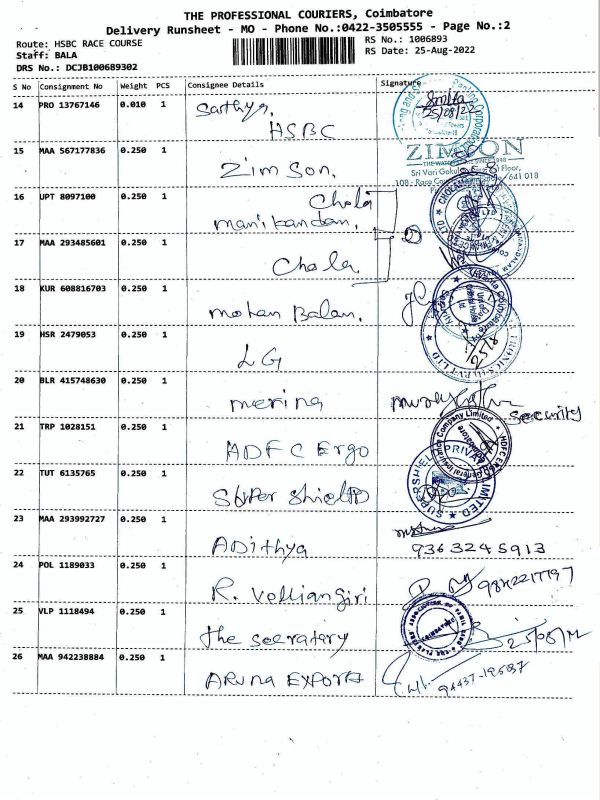 THE PROFESSIONAL COURIERS, Coimbatore
Delivery Runsheet - MO - Phone No.:0422-3505555 - Page No.:2
Route: HSBC RACE COURSE
RS No.: 1006893
Staff: BALA
RS Date: 25-Aug-2022
DRS No.: DCJB100689302
S No Consignment No Weight PCS Consignee Details Signature
14 PRO 13767146 0.010 1 Sathya,
HSBC
25/08/22
15 MAA 567177836 0.250 1 Zim Son.
ZIMSON
THE WATCH SINCE 1948
Sri Vari Gokul Floor,
108 - Race Cour 641 018
16 UPT 8097100 0.250 1 Chola
manikandan.
17 MAA 293485601 0.250 1 Chola
18 KUR 608816703 0.250 1 mohan Balan.
19 HSR 2479053 0.250 1 LG
20 BLR 415748630 0.250 1 merina
security
21 TRP 1028151 0.250 1 ADFC Ergo
22 TUT 6135765 0.250 1 Super Shield
SUPERSHIEL PRIVAT LIMITED
23 MAA 293992727 0.250 1 ADithya
9363245913
24 POL 1189033 0.250 1 R. Velliangiri
25 VLP 1118494 0.250 1 the secratary
25/08/22
26 MAA 942238884 0.250 1 Aruna Exports
94437-19687